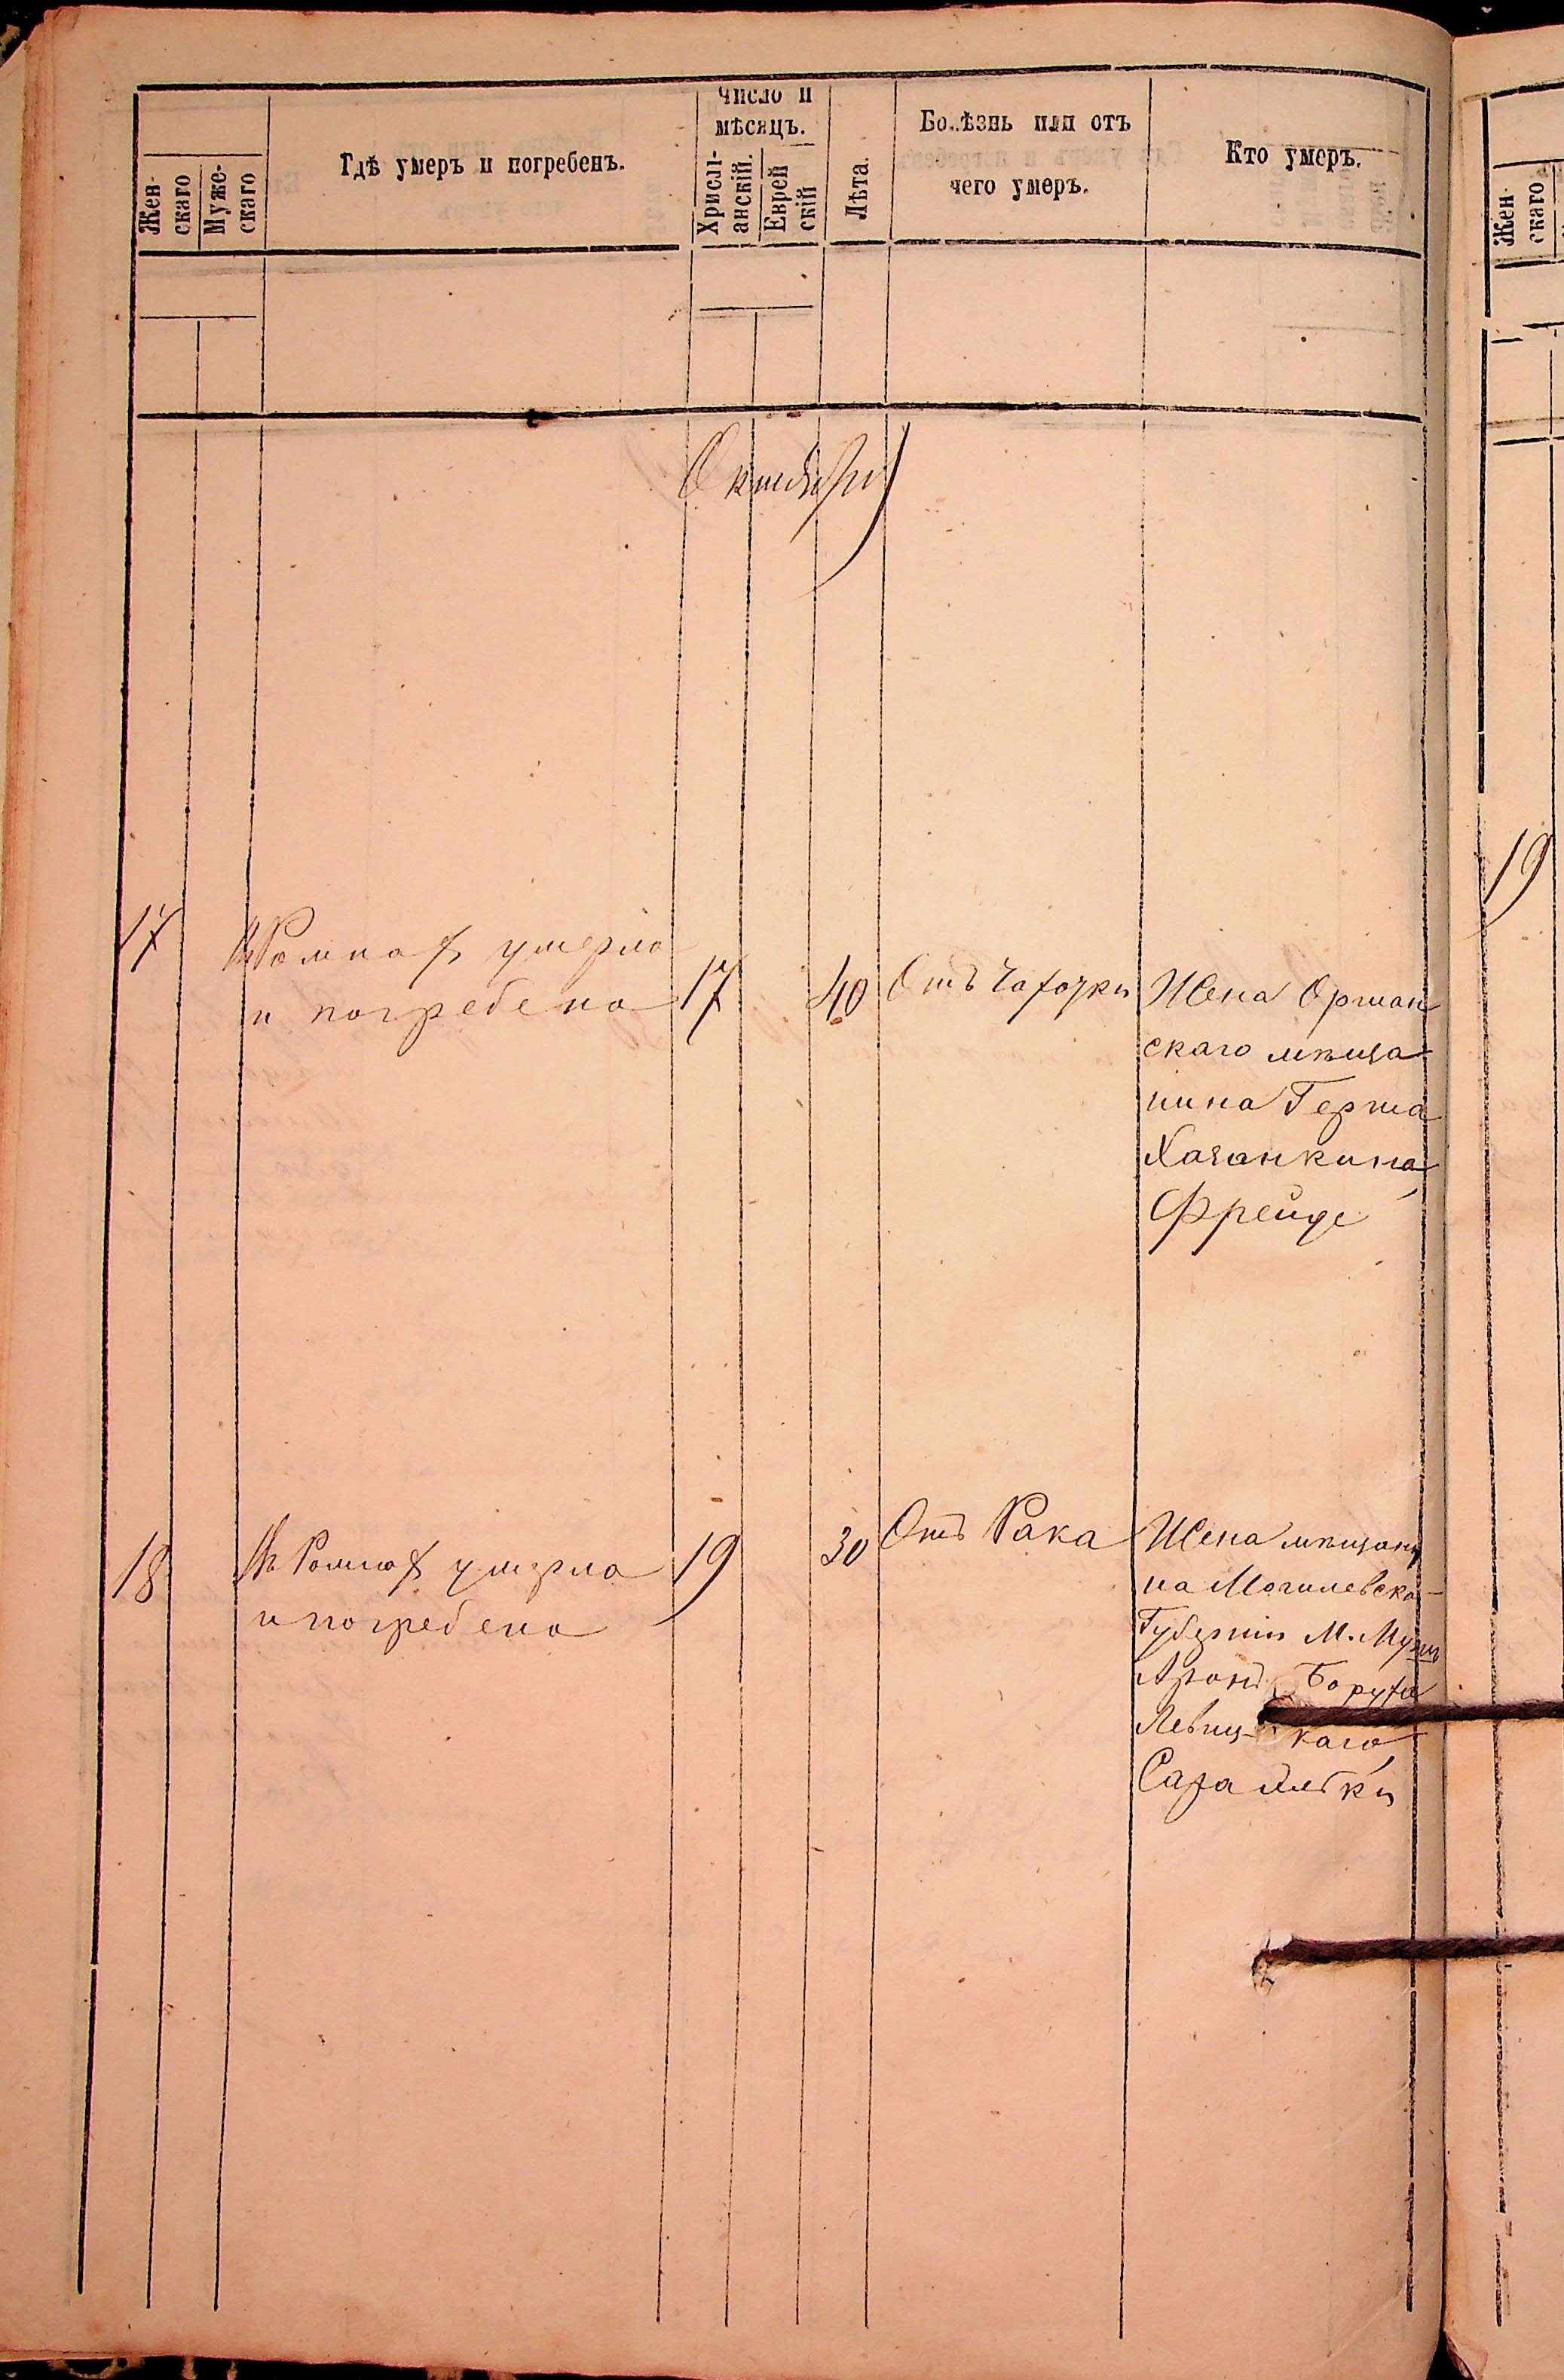 Жен-
скаго
Муже-
скаго
Гдѣ умеръ и погребенъ.
Число и
мѣсяцъ.
Христі-
анскій.
Еврей
скій
Лѣта.
Болѣзнь или отъ
чего умеръ.
Кто умеръ.
Жен-
скаго
Октября
19
17
Въ Ромнах умерла
и погребена
17
40
Отъ Чахотки
Жена Оршан
скаго мѣща
нина Герша
Хазанкина
Фрейде
18
Въ Ромнах умерла
и погребена
19
30
Отъ Рака
Жена мѣщани
на Могилевска-
Губерніи М.
Аронъ Боруха
Левиц-каго
Сара